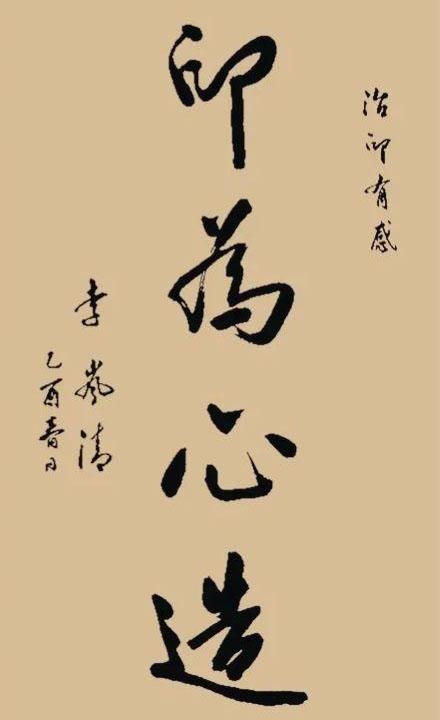 治印有感
印為心造
李嵐清
乙酉春日